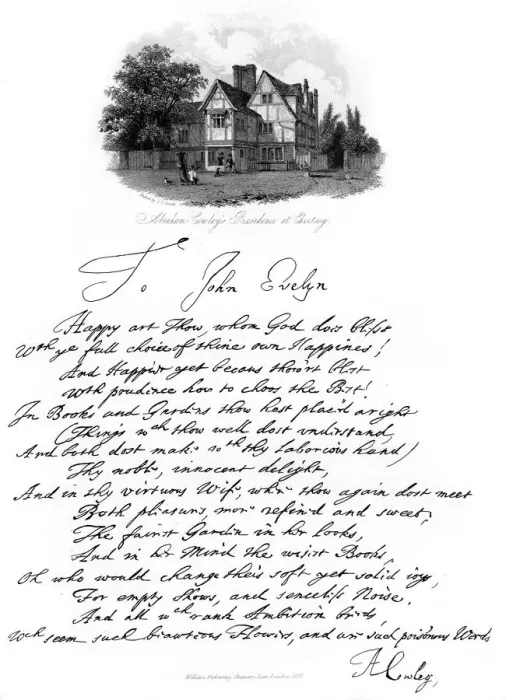 Abraham Cowley's Residence at Chertsey.
To John Evelyn
Happy art Thow, whom God does bless
Wth ye full choice of thine own Happines!
And Happier yet becaus thou'rt blest
Wth prudence how to choos the Best!
In Books and Gardens thow hast plac'd aright
(Things wch thow well dost vnderstand,
And both dost make wth thy laborious hand)
Thy noble, innocent delight,
And in thy virtuous Wife, wher thow again dost meet
Both pleasurs more refin'd and sweet,
The fairest Garden in her looks,
And in her Mind the wisest Books,
Oh who would change theis soft yet solid ioys,
For empty Shows, and senceless Noise,
And all wch rank Ambition brids,
Wch seem such beauteous Flowers, and are such poisonous Weeds
A Cowley,
William Pickering, Chancery Lane, London.